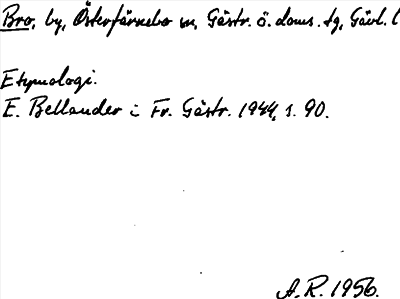 Bro, by, Österfärnebo sn, Gästr. ö. doms. tg, Gävl. l
Etymologi.
E. Bellander i Fr. Gästr. 1944, s. 90.
A.R. 1956.